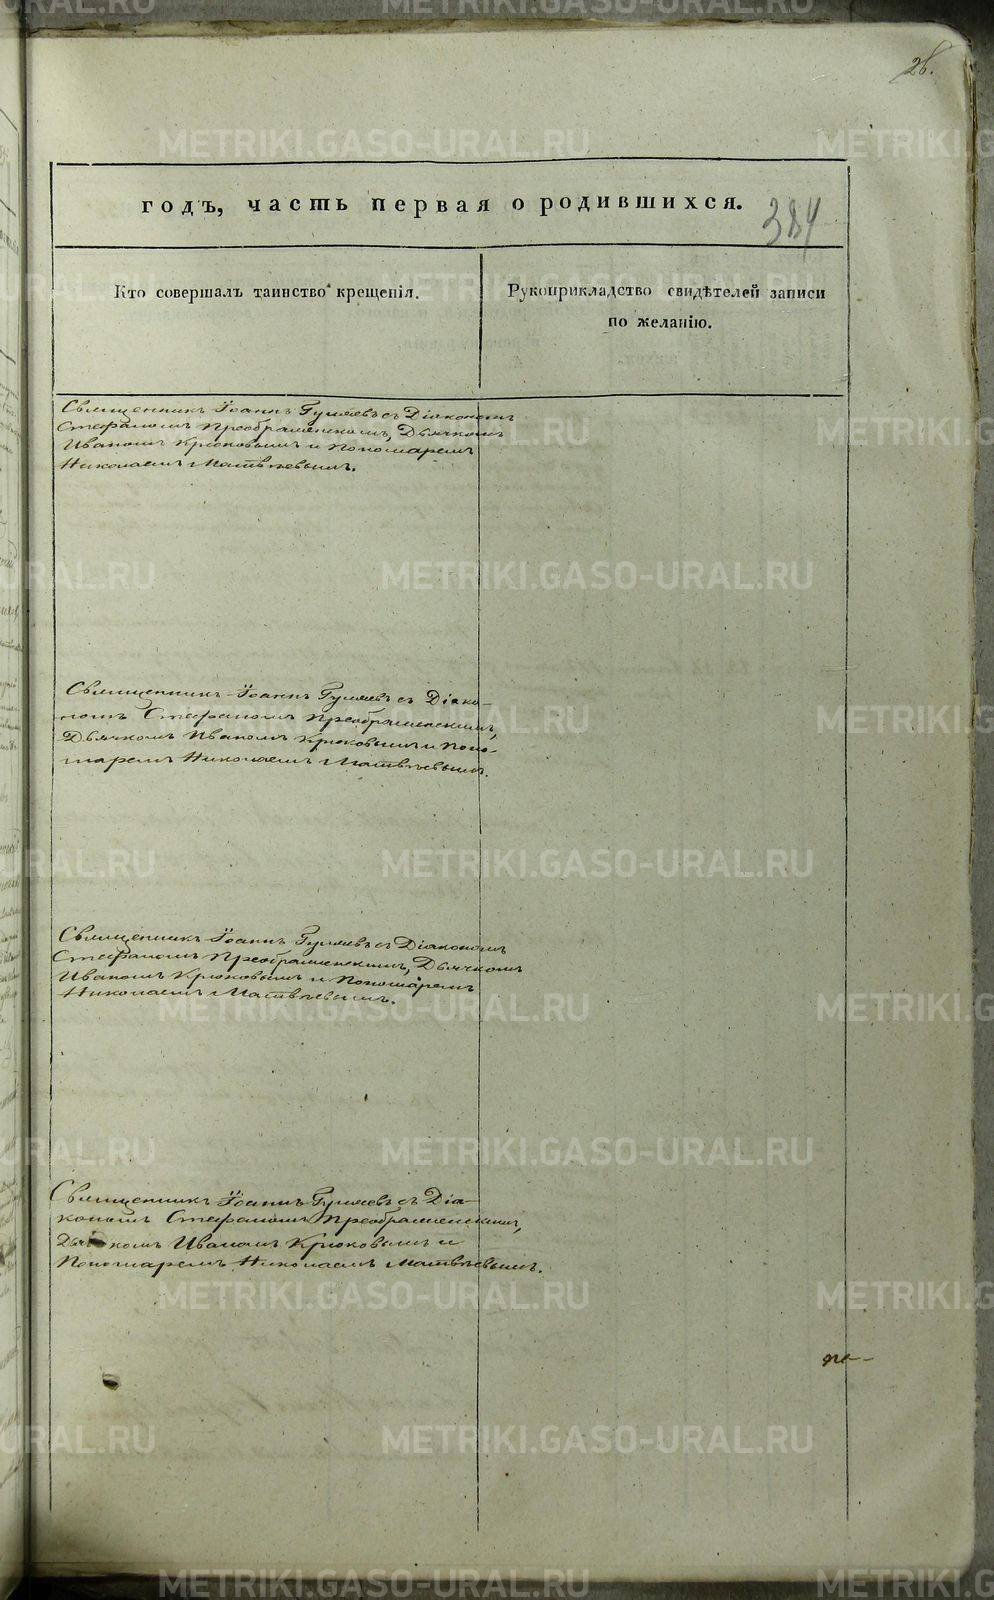 26.
годъ, часть первая о родившихся.
384
Кто совершалъ таинство крещенія.
Рукоприкладство свидѣтелей записи
по желанію.
Священникъ Іоаннъ Гуляевъ съ Діакономъ
Стефаномъ Преображенскимъ, Дьячкомъ
Иваномъ Крюковымъ и Пономаремъ
Николаемъ Матвѣевымъ.
Священникъ Іоаннъ Гуляевъ съ Діако-
номъ Стефаномъ Преображенскимъ,
Дьячкомъ Иваномъ Крюковымъ и Поно-
маремъ Николаемъ Матвѣевымъ.
Священникъ Іоаннъ Гуляевъ съ Діакономъ
Стефаномъ Преображенскимъ, Дьячкомъ
Иваномъ Крюковымъ и Пономаремъ
Николаемъ Матвѣевымъ.
Священникъ Іоаннъ Гуляевъ съ Діа-
кономъ Стефаномъ Преображенскимъ,
Дьячкомъ Иваномъ Крюковымъ и
Пономаремъ Николаемъ Матвѣевымъ.
METRIKI.GASO-URAL.RU